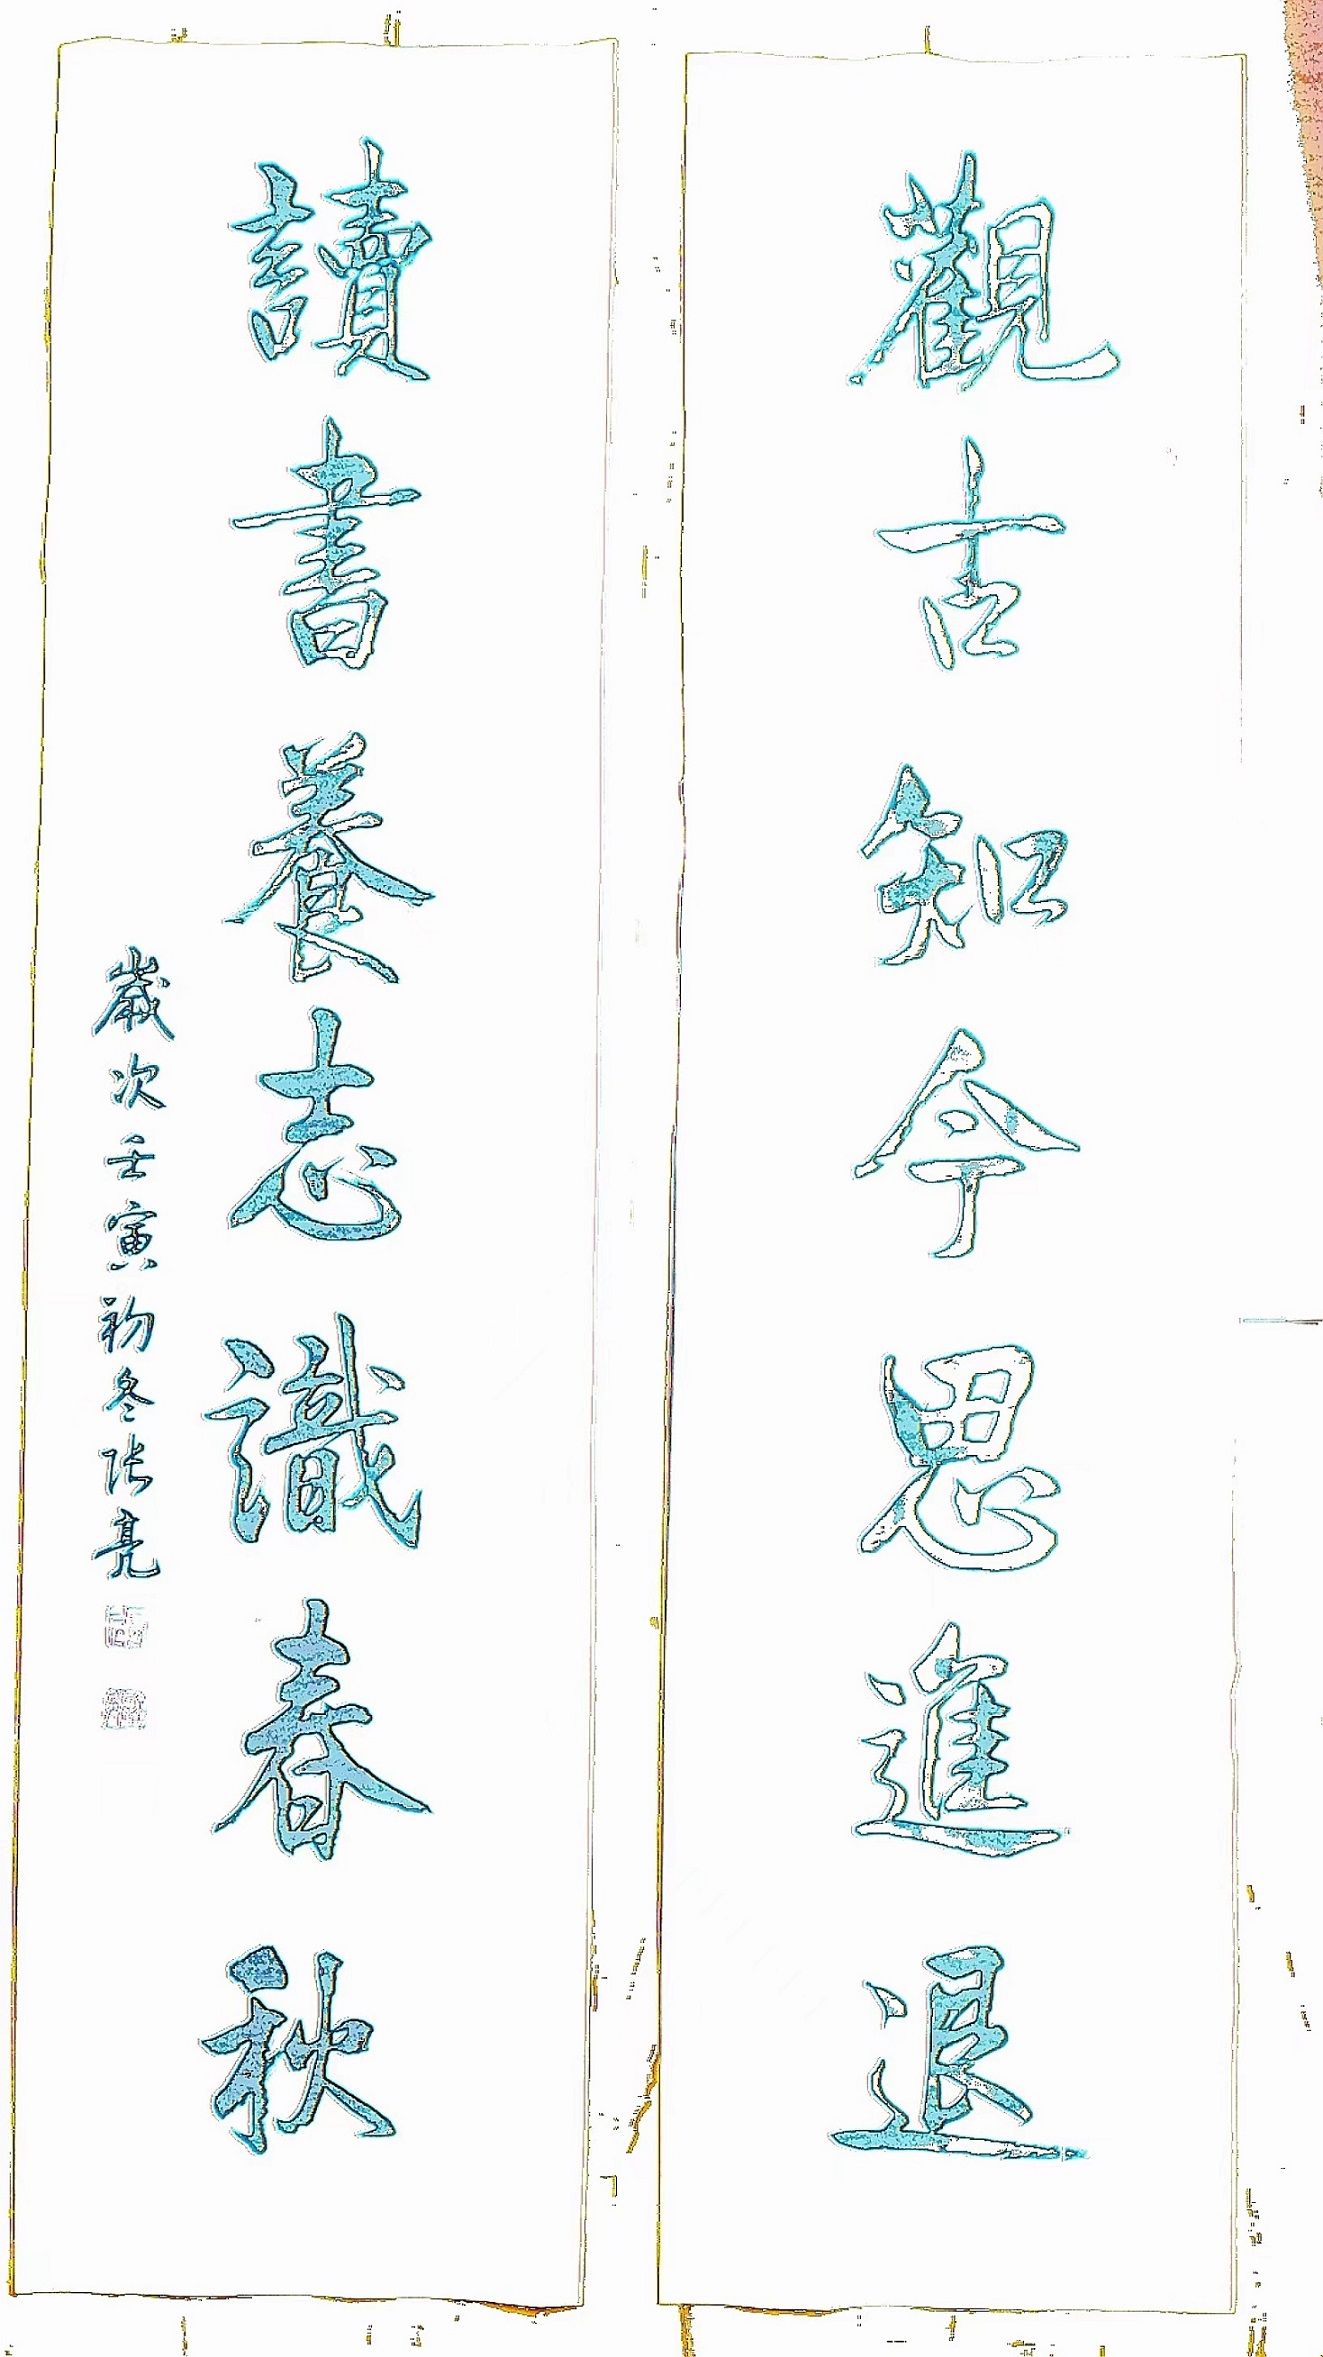 觀古知今思進退
讀書養志識春秋
歲次壬寅初冬张亮